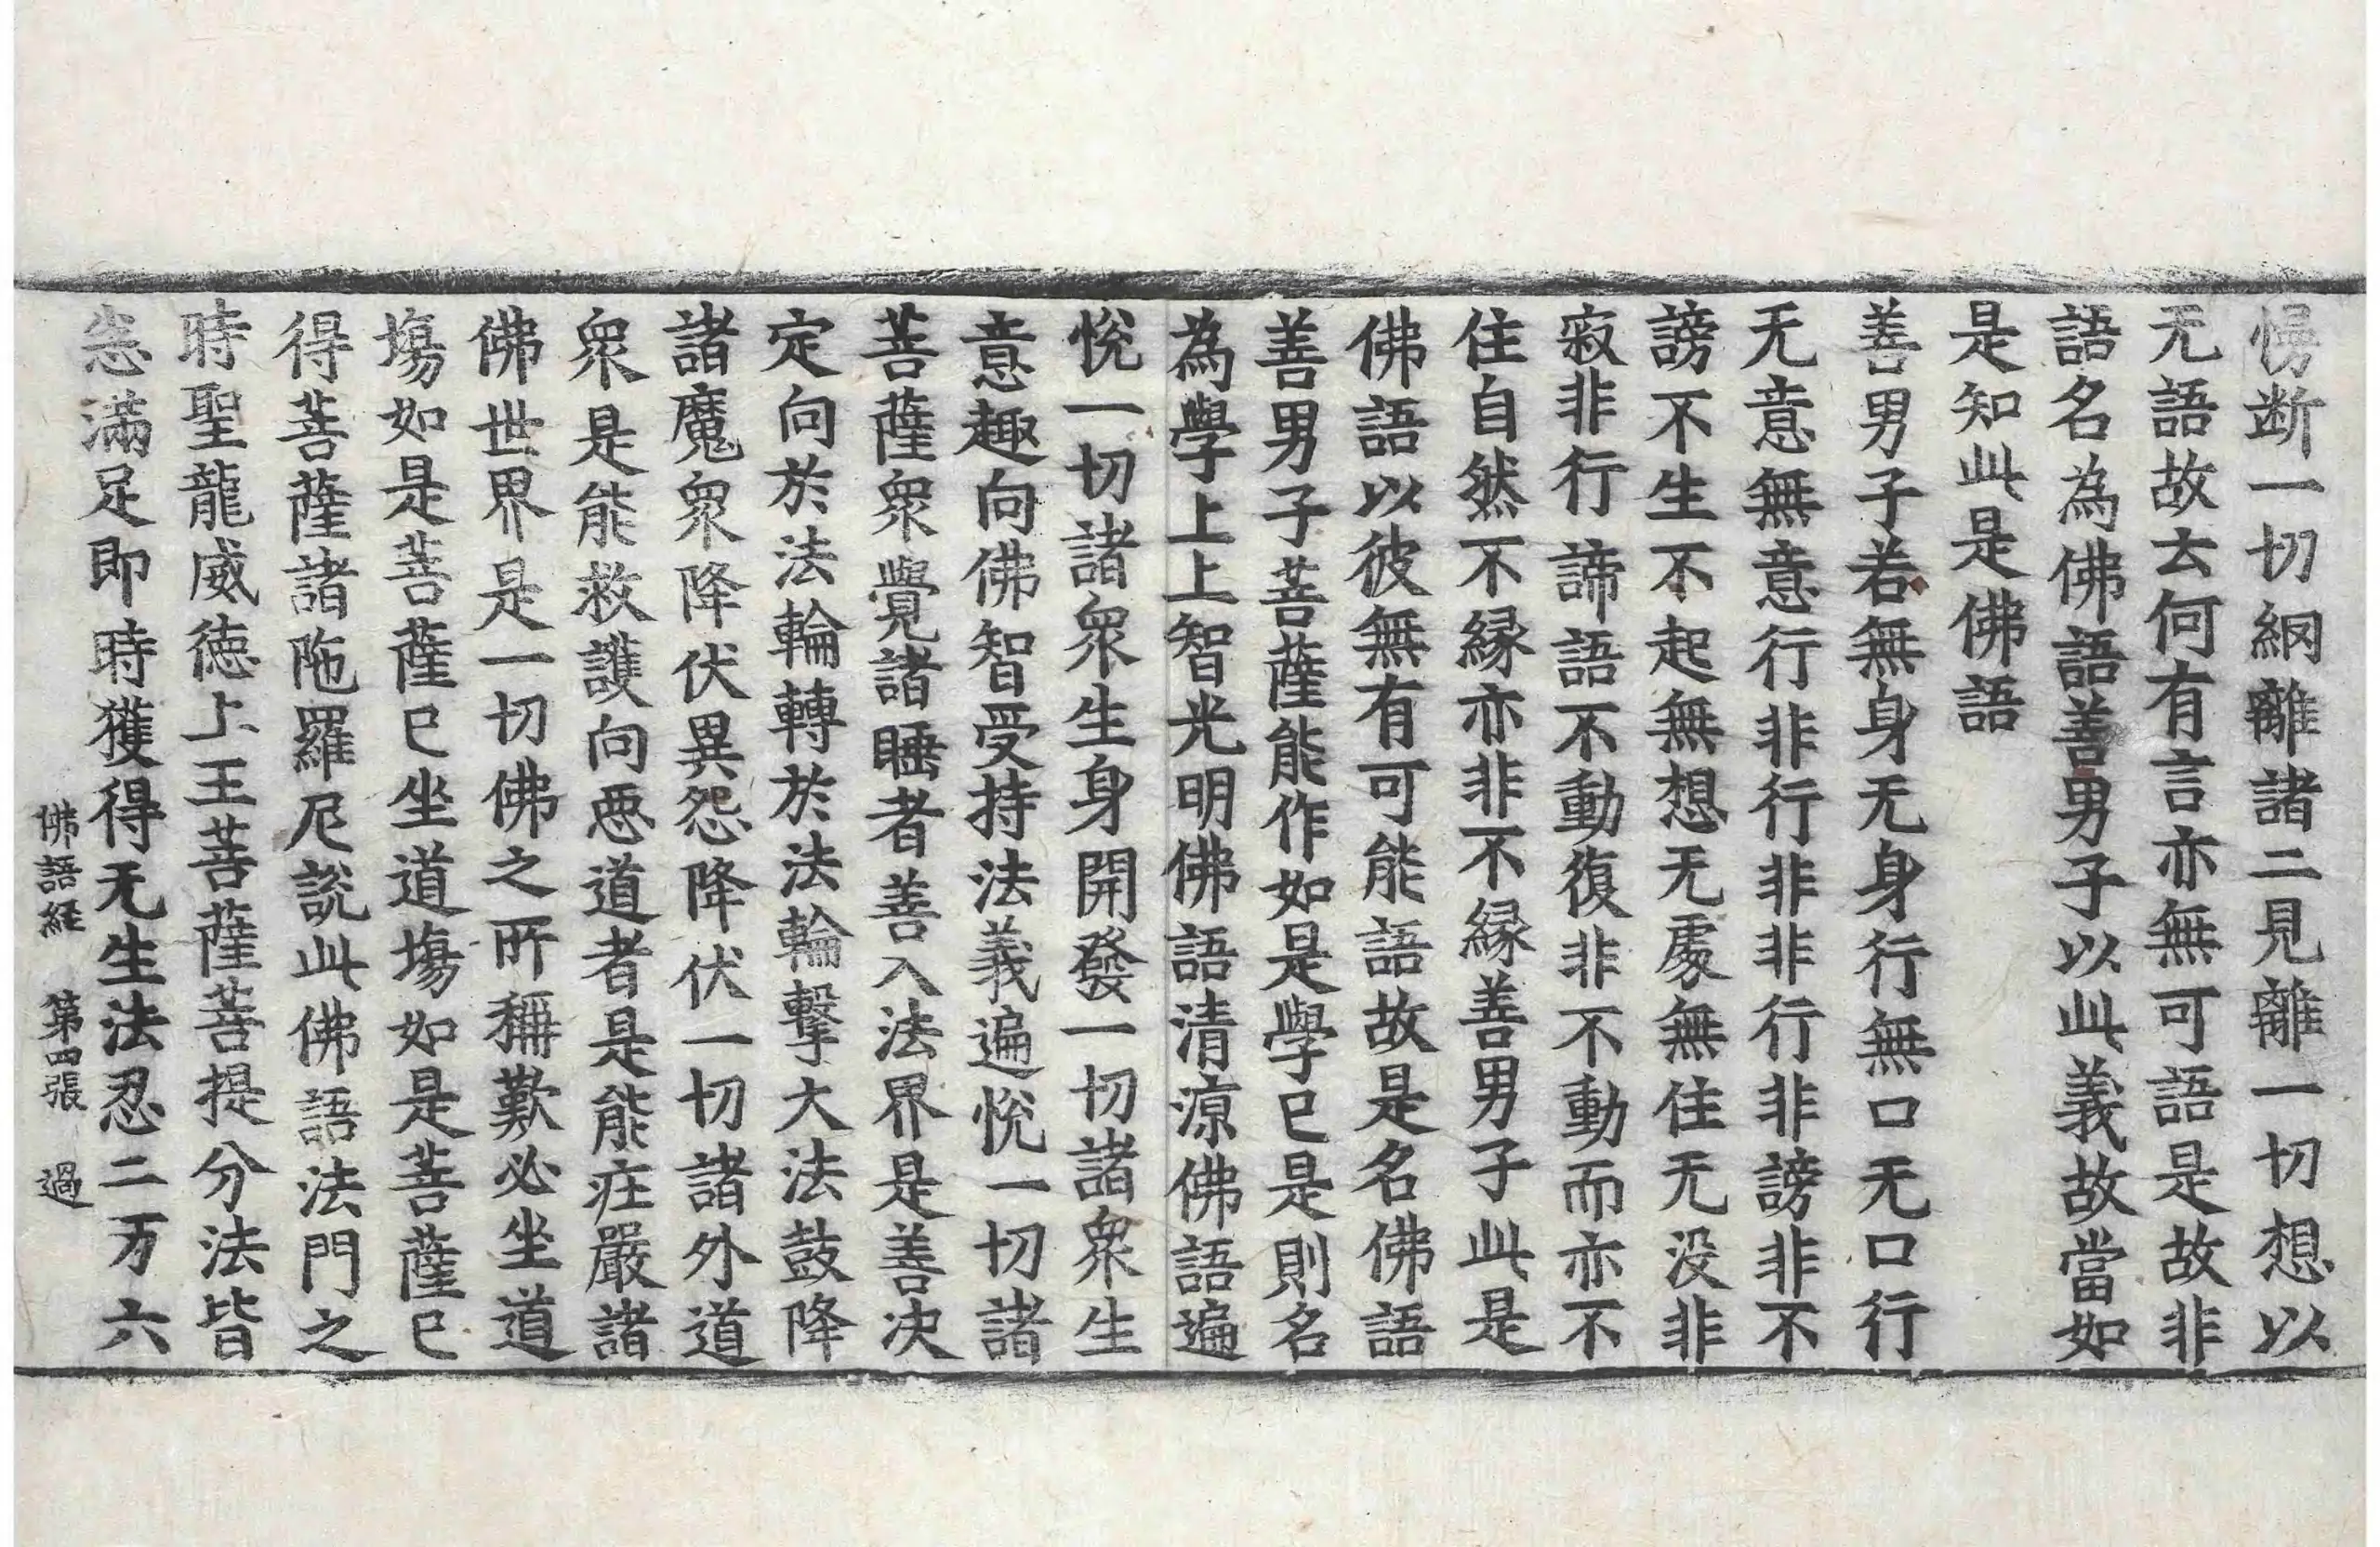 慢断一切網離諸二見離一切想以
无語故去何有言亦無可語是故非
語名為佛語善男子以此義故當如
是知此是佛語
善男子若無身无身行無口无口行
无意無意行非行非非行非謗非不
謗不生不起無想无處無住无没非
寂非行諦語不動復非不動而亦不
住自然不縁亦非不縁善男子此是
佛語以彼無有可能語故是名佛語
善男子菩薩能作如是學已是則名
為學上上智光明佛語清涼佛語遍
悅一切諸衆生身開發一切諸衆生
意趣向佛智受持法義遍悅一切諸
菩薩衆覺諸睡者善入法界是善决
定向於法輪轉於法輪擊大法鼓降
諸魔衆降伏異怨降伏一切諸外道
衆是能救護向惡道者是能庄嚴諸
佛世界是一切佛之所稱歎必坐道
塲如是菩薩已坐道塲如是菩薩已
得菩薩諸陁羅尼說此佛語法門之
時聖龍威徳上王菩薩菩提分法皆
悉滿足即時獲得无生法忍二万六
佛語経　第四張　過